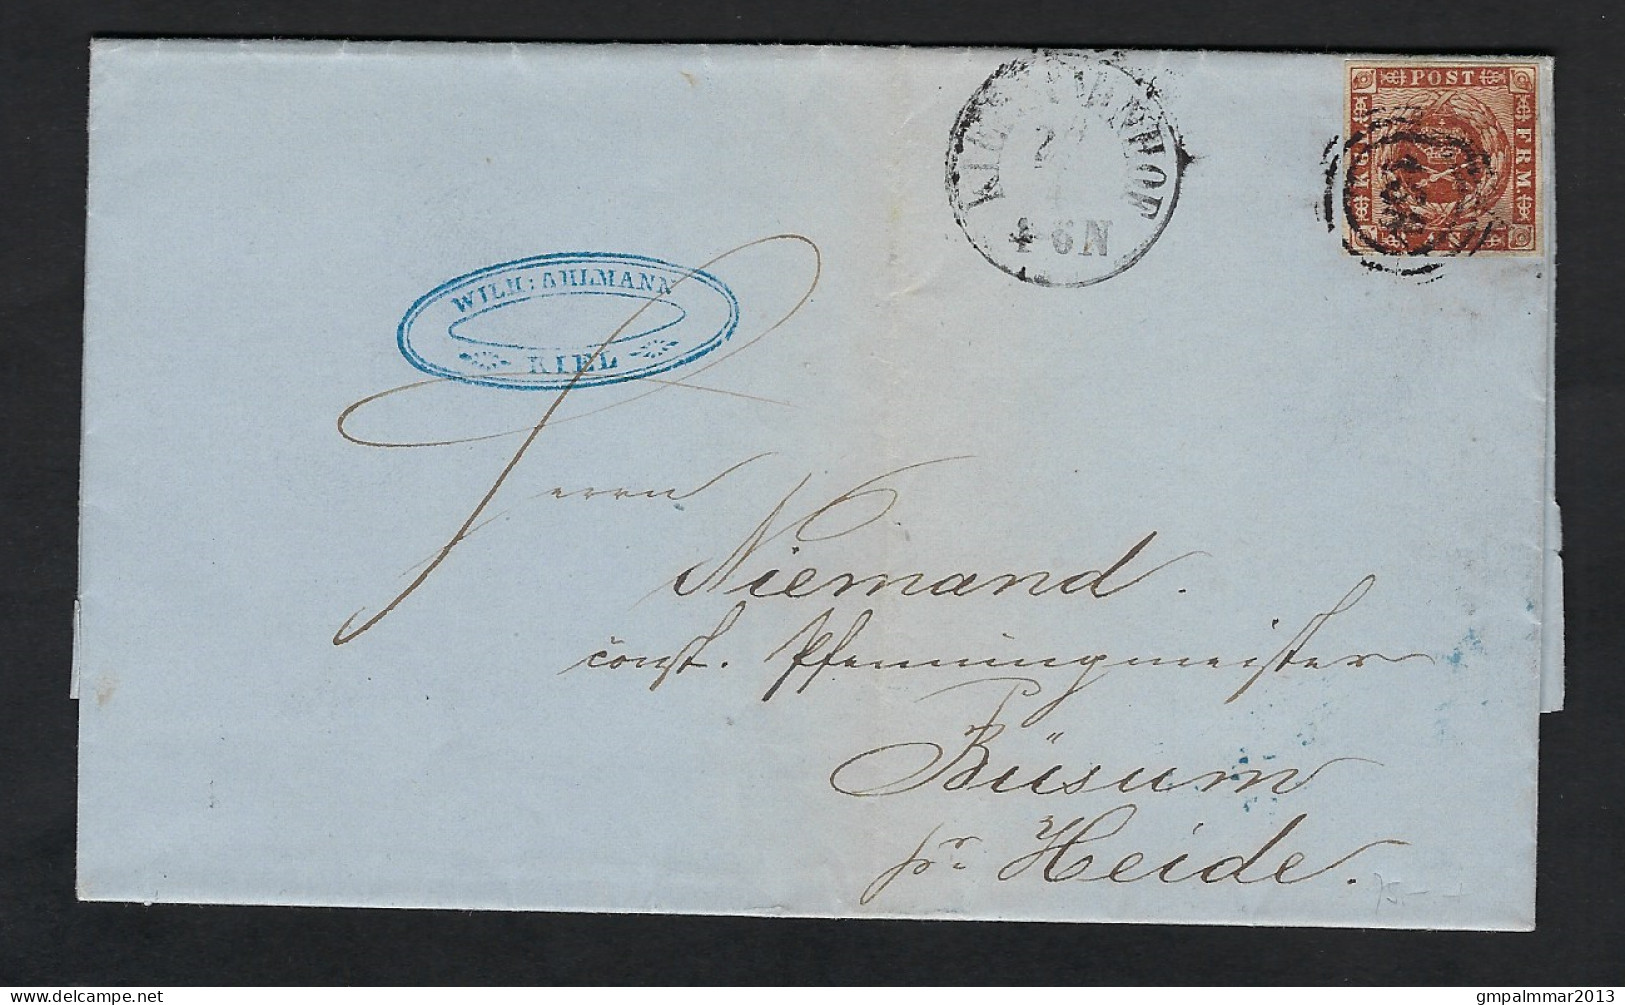 POST
FRM.
KIEL BAHNHOF
4-6 N
WILH: AHLMANN
KIEL
Herrn
Niemand.
const. Pfenningmeister
Büsum
pr. Heide.
75.-
delcampe.net
gmpalmmar2013